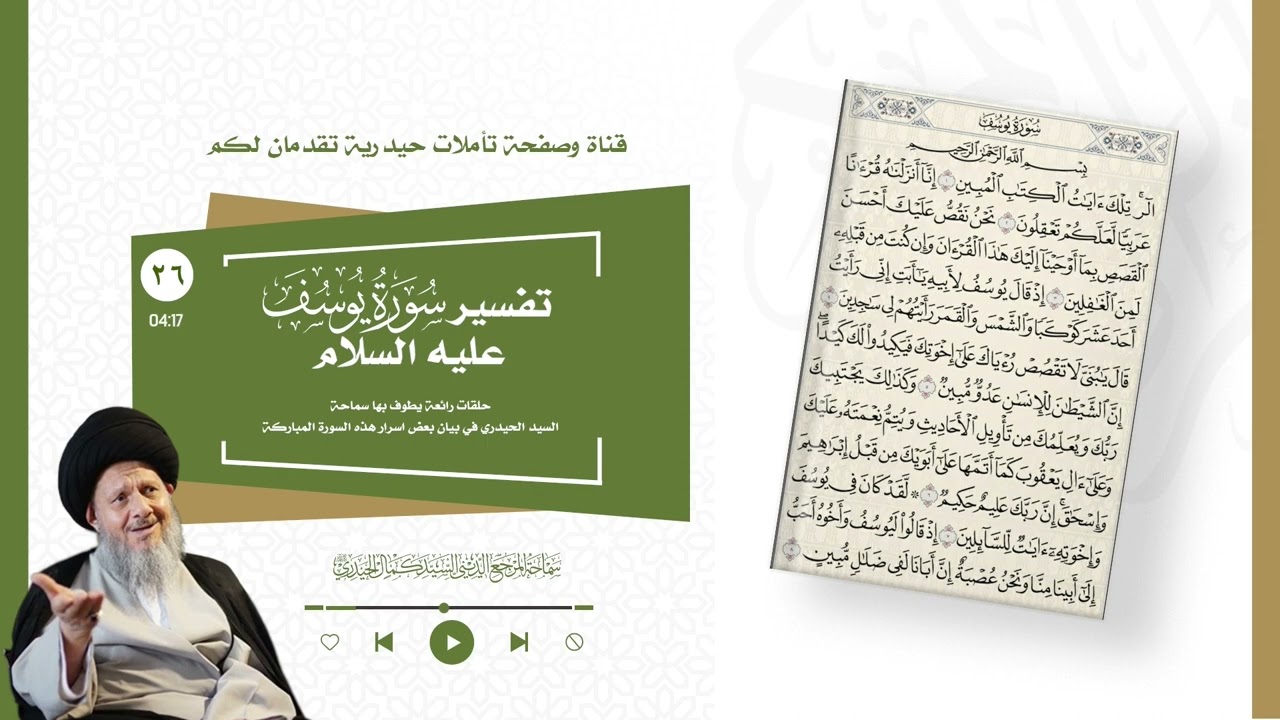 قناة وصفحة تأملات حيدرية تقدمان لكم
٢٦
04:17
تفسير سُورَةُ يُوسُفَ
عليه السلام
حلقات رائعة يطوف بها سماحة
السيد الحيدري في بيان بعض اسرار هذه السورة المباركة
سماحة المرجع الديني السيد كمال الحيدري
سُورَةُ يُوسُفَ
بِسْمِ اللَّهِ الرَّحْمَٰنِ الرَّحِيمِ
الٓرۚ تِلۡكَ ءَايَٰتُ ٱلۡكِتَٰبِ ٱلۡمُبِينِ ١ إِنَّآ أَنزَلۡنَٰهُ قُرۡءَٰنًا
عَرَبِيّٗا لَّعَلَّكُمۡ تَعۡقِلُونَ ٢ نَحۡنُ نَقُصُّ عَلَيۡكَ أَحۡسَنَ
ٱلۡقَصَصِ بِمَآ أَوۡحَيۡنَآ إِلَيۡكَ هَٰذَا ٱلۡقُرۡءَانَ وَإِن كُنتَ مِن قَبۡلِهِۦ
لَمِنَ ٱلۡغَٰفِلِينَ ٣ إِذۡ قَالَ يُوسُفُ لِأَبِيهِ يَٰٓأَبَتِ إِنِّي رَأَيۡتُ
أَحَدَ عَشَرَ كَوۡكَبٗا وَٱلشَّمۡسَ وَٱلۡقَمَرَ رَأَيۡتُهُمۡ لِي سَٰجِدِينَ ٤
قَالَ يَٰبُنَيَّ لَا تَقۡصُصۡ رُءۡيَاكَ عَلَىٰٓ إِخۡوَتِكَ فَيَكِيدُواْ لَكَ كَيۡدًاۖ
إِنَّ ٱلشَّيۡطَٰنَ لِلۡإِنسَٰنِ عَدُوّٞ مُّبِينٞ ٥ وَكَذَٰلِكَ يَجۡتَبِيكَ
رَبُّكَ وَيُعَلِّمُكَ مِن تَأۡوِيلِ ٱلۡأَحَادِيثِ وَيُتِمُّ نِعۡمَتَهُۥ عَلَيۡكَ
وَعَلَىٰٓ ءَالِ يَعۡقُوبَ كَمَآ أَتَمَّهَا عَلَىٰٓ أَبَوَيۡكَ مِن قَبۡلُ إِبۡرَٰهِيمَ
وَإِسۡحَٰقَۚ إِنَّ رَبَّكَ عَلِيمٌ حَكِيمٞ ٦ ۞ لَّقَدۡ كَانَ فِي يُوسُفَ
وَإِخۡوَتِهِۦٓ ءَايَٰتٞ لِّلسَّآئِلِينَ ٧ إِذۡ قَالُواْ لَيُوسُفُ وَأَخُوهُ أَحَبُّ
إِلَىٰٓ أَبِينَا مِنَّا وَنَحۡنُ عُصۡبَةٌ إِنَّ أَبَانَا لَفِي ضَلَٰلٖ مُّبِينٍ ٨